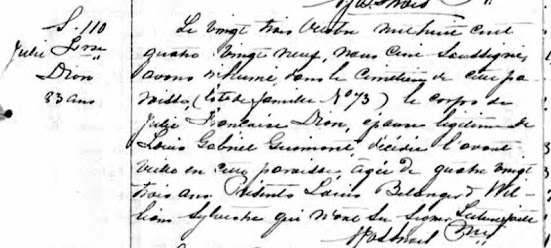 S. 110
Julie Frse
Dion
83 ans
Le vingt trois Octobre mil huit cent
quatre vingt neuf, nous curé soussigné,
avons inhumé dans le cimetière de cette pa
roisse, (lot de famille No 73) le corps de
Julie Françoise Dion, épouse légitime de
Louis Gabriel décédée l'avant
veille en cette paroisse, agée de quatre vingt
trois ans. Présents Louis Belanger & Wil
liam Sylvestre qui n'ont su signer. Lecture faite
Ptre